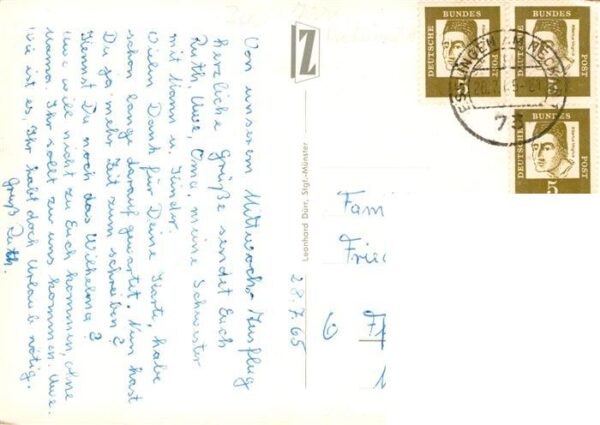 Von unserem Mittwochs-Ausflug
herzliche Grüße sendet Euch
Ruth, Uwe, Oma, meine Schwester
mit Mann u. Kinder.
Vielen Dank für Deine Karte, habe
schon lange darauf gewartet. Nun hast
Du ja mehr Zeit zum schreiben?
Kennst Du noch das Wilhelma?
Uwe will nicht zu Euch kommen, ohne
Mama. Ihr sollt zu uns kommen. Uwe.
wie ist es. Ihr habt doch Urlaub nötig.
Gruß Ruth.
28.7.65
Z
Leonhard Dürr, Stgt.-Münster
Fam
Fried
6
DEUTSCHE BUNDESPOST
DEUTSCHE BUNDESPOST
DEUTSCHE BUNDESPOST
5
ESSLINGEN
NECKAR
73